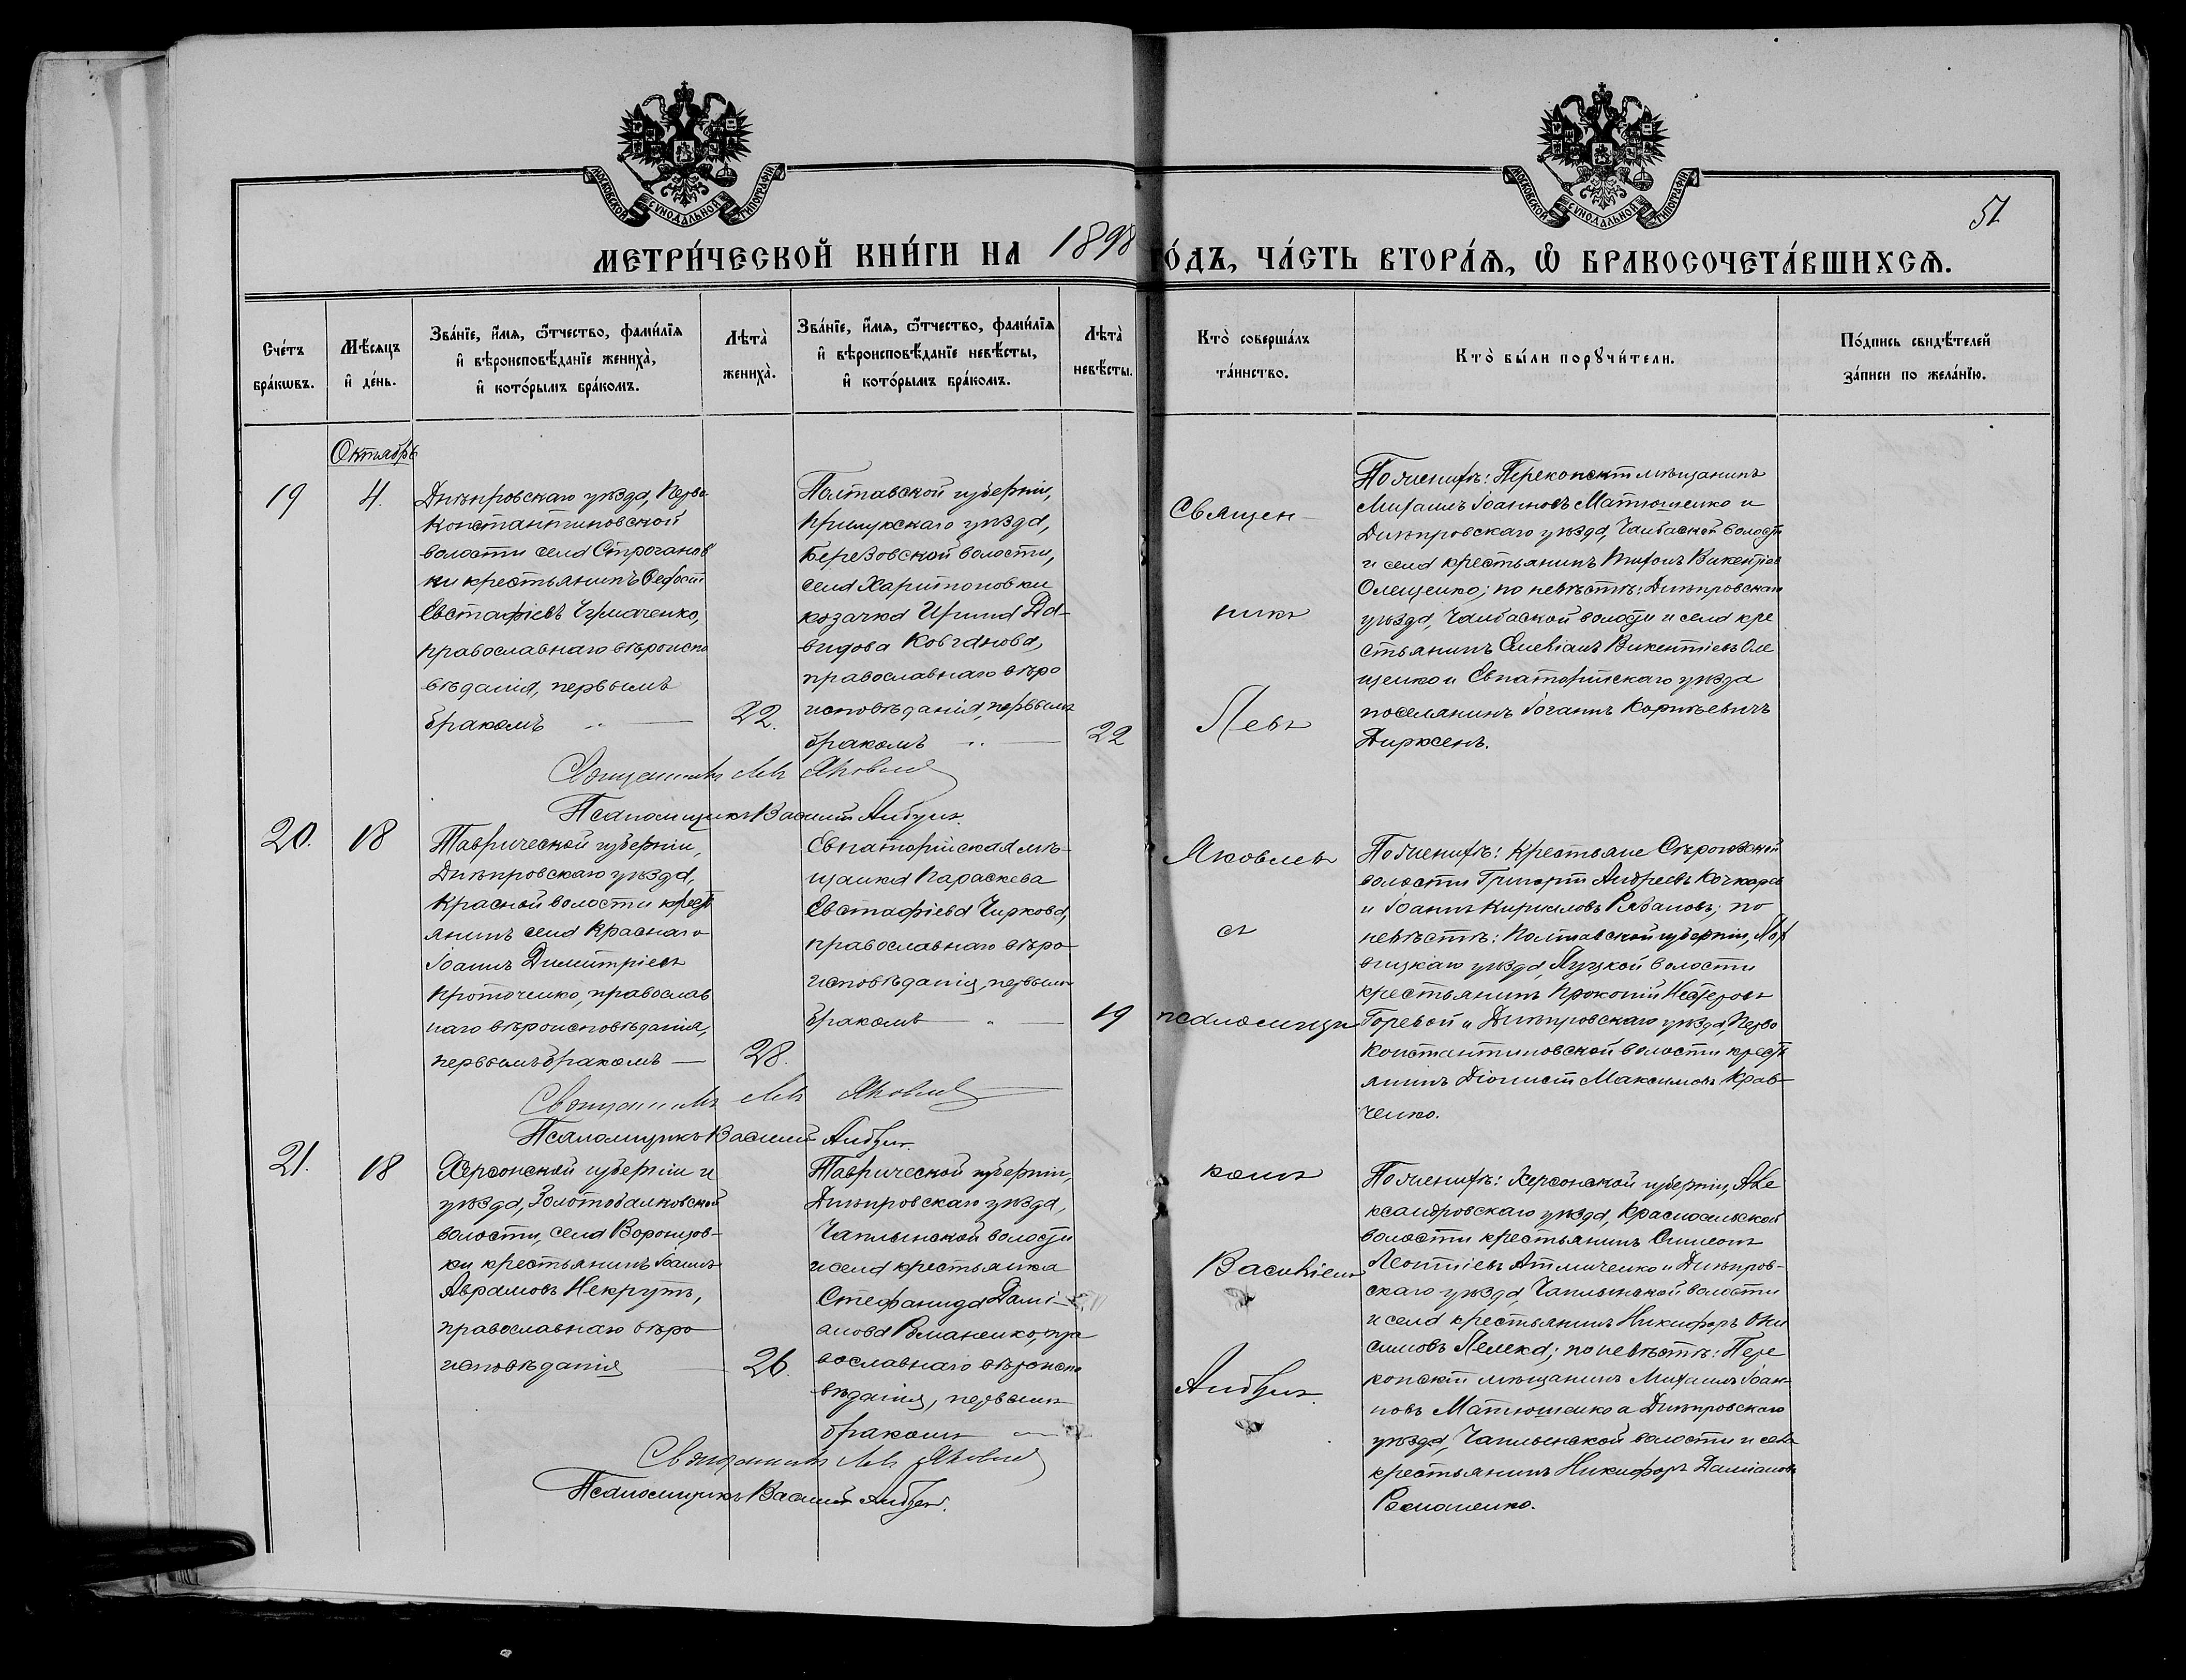 МОСКОВСКОЙ СѴНОДАЛЬНОЙ ТИПОГРАФІИ
МОСКОВСКОЙ СѴНОДАЛЬНОЙ ТИПОГРАФІИ
51
МЕТРИ́ЧЕСКОЙ КНИ́ГИ НА 1898 ГО́ДЪ, ЧА́СТЬ ВТОРА́Я, Ѡ БРАКОСОЧЕТА́ВШИХСЯ.
Сче́тъ
бра́кѡвъ.
Мѣ́сяцъ
и҆ де́нь.
Зва́нїе, и҆́мя, ѻ҆́тчество, фами́лїя
и҆ вѣроисповѣ́данїе жениха̀,
и҆ кото́рымъ бра́комъ.
Лѣта̀
жениха̀.
Зва́нїе, и҆́мя, ѻ҆́тчество, фами́лїя
и҆ вѣроисповѣ́данїе невѣ́сты,
и҆ кото́рымъ бра́комъ.
Лѣта̀
невѣ́сты.
Кто̀ соверша́лъ
та́инство.
Кто̀ бы́ли порꙋчи́тели.
По́дпись свидѣ́телей
за́писи по жела́нїю.
Октябрь
19
4.
Днѣпровскаго уѣзда, Перво
константиновской
волости села Строганов
ки крестьянинъ
Евстафіевъ
православнаго вѣроиспо
вѣданія, первымъ
бракомъ
22.
Полтавской губерніи,
Прилукскаго уѣзда,
Березовской волости,
села Харитоновки
козачка Ирина Да-
видова
православнаго вѣро
исповѣданія, первымъ
бракомъ
22
Священ-
никъ
Левъ
По женихѣ: Перекопскій мѣщанинъ
Михаилъ Іоанновъ Матюшенко и
Днѣпровскаго уѣзда, Чалбаской волости
и села крестьянинъ Викентіев
Олещенко; по невѣстѣ: Днѣпровскаго
уѣзда, Чалбаской волости и села кре
стьянинъ Викентіевъ Оле
щенко и Евпаторійскаго уѣзда
поселянинъ Іоганъ Корнѣевичъ
Дирксенъ.
Священникъ Левъ Яковлев
Псаломщикъ Василій
20.
18
Таврической губерніи,
Днѣпровскаго уѣзда,
Красной волости крест
янинъ села Краснаго
Іоаннъ Димитріевъ
Проточенко, православ
наго вѣроисповѣданія,
первымъ бракомъ
28.
Евпаторійская мѣ-
щанка Параскева
Евстафіева Чиркова,
православнаго вѣро
исповѣданія, первымъ
бракомъ
19
Яковлевъ
съ
псаломщи
По женихѣ: Крестьяне Сѣрогозской
волости Григорій Андреевъ
и Іоаннъ Кириловъ Рябановъ; по
невѣстѣ: Полтавской губерніи, Лох
вицкаго уѣзда, Луцкой волости
крестьянинъ Прокопій Несторовъ
Горевой и Днѣпровскаго уѣзда, Перво
константиновской волости крест
янинъ Діонисій Максимовъ Крав-
ченко.
Священникъ Левъ Яковлев
Псаломщикъ Василій
21.
18
Херсонской губерніи и
уѣзда, Золотобалковской
волости, села Воронцов-
ки крестьянинъ Іоаннъ
Аврамовъ Некрутъ,
православнаго вѣро
исповѣданія
26.
Таврической губерніи,
Днѣпровскаго уѣзда,
Чаплынской волости
и села крестьянка
Стефанида Дамі-
анова Романенко, пра
вославнаго вѣроиспо
вѣданія, первымъ
бракомъ
комъ
Василіемъ
По женихѣ: Херсонской губерніи, Але
ксандровскаго уѣзда, Красносельской
волости крестьянинъ Симеонъ
Леонтіевъ и Днѣпров-
скаго уѣзда, Чаплынской волости
и села крестьянинъ Никифоръ Они
симовъ Пелеха; по невѣстѣ: Пере
копскій мѣщанинъ Михаилъ Іоан-
новъ Матюшенко а Днѣпровскаго
уѣзда, Чаплынской волости и села
крестьянинъ Никифоръ Даміановъ
Романенко.
Священникъ Левъ Яковлев
Псаломщикъ Василій